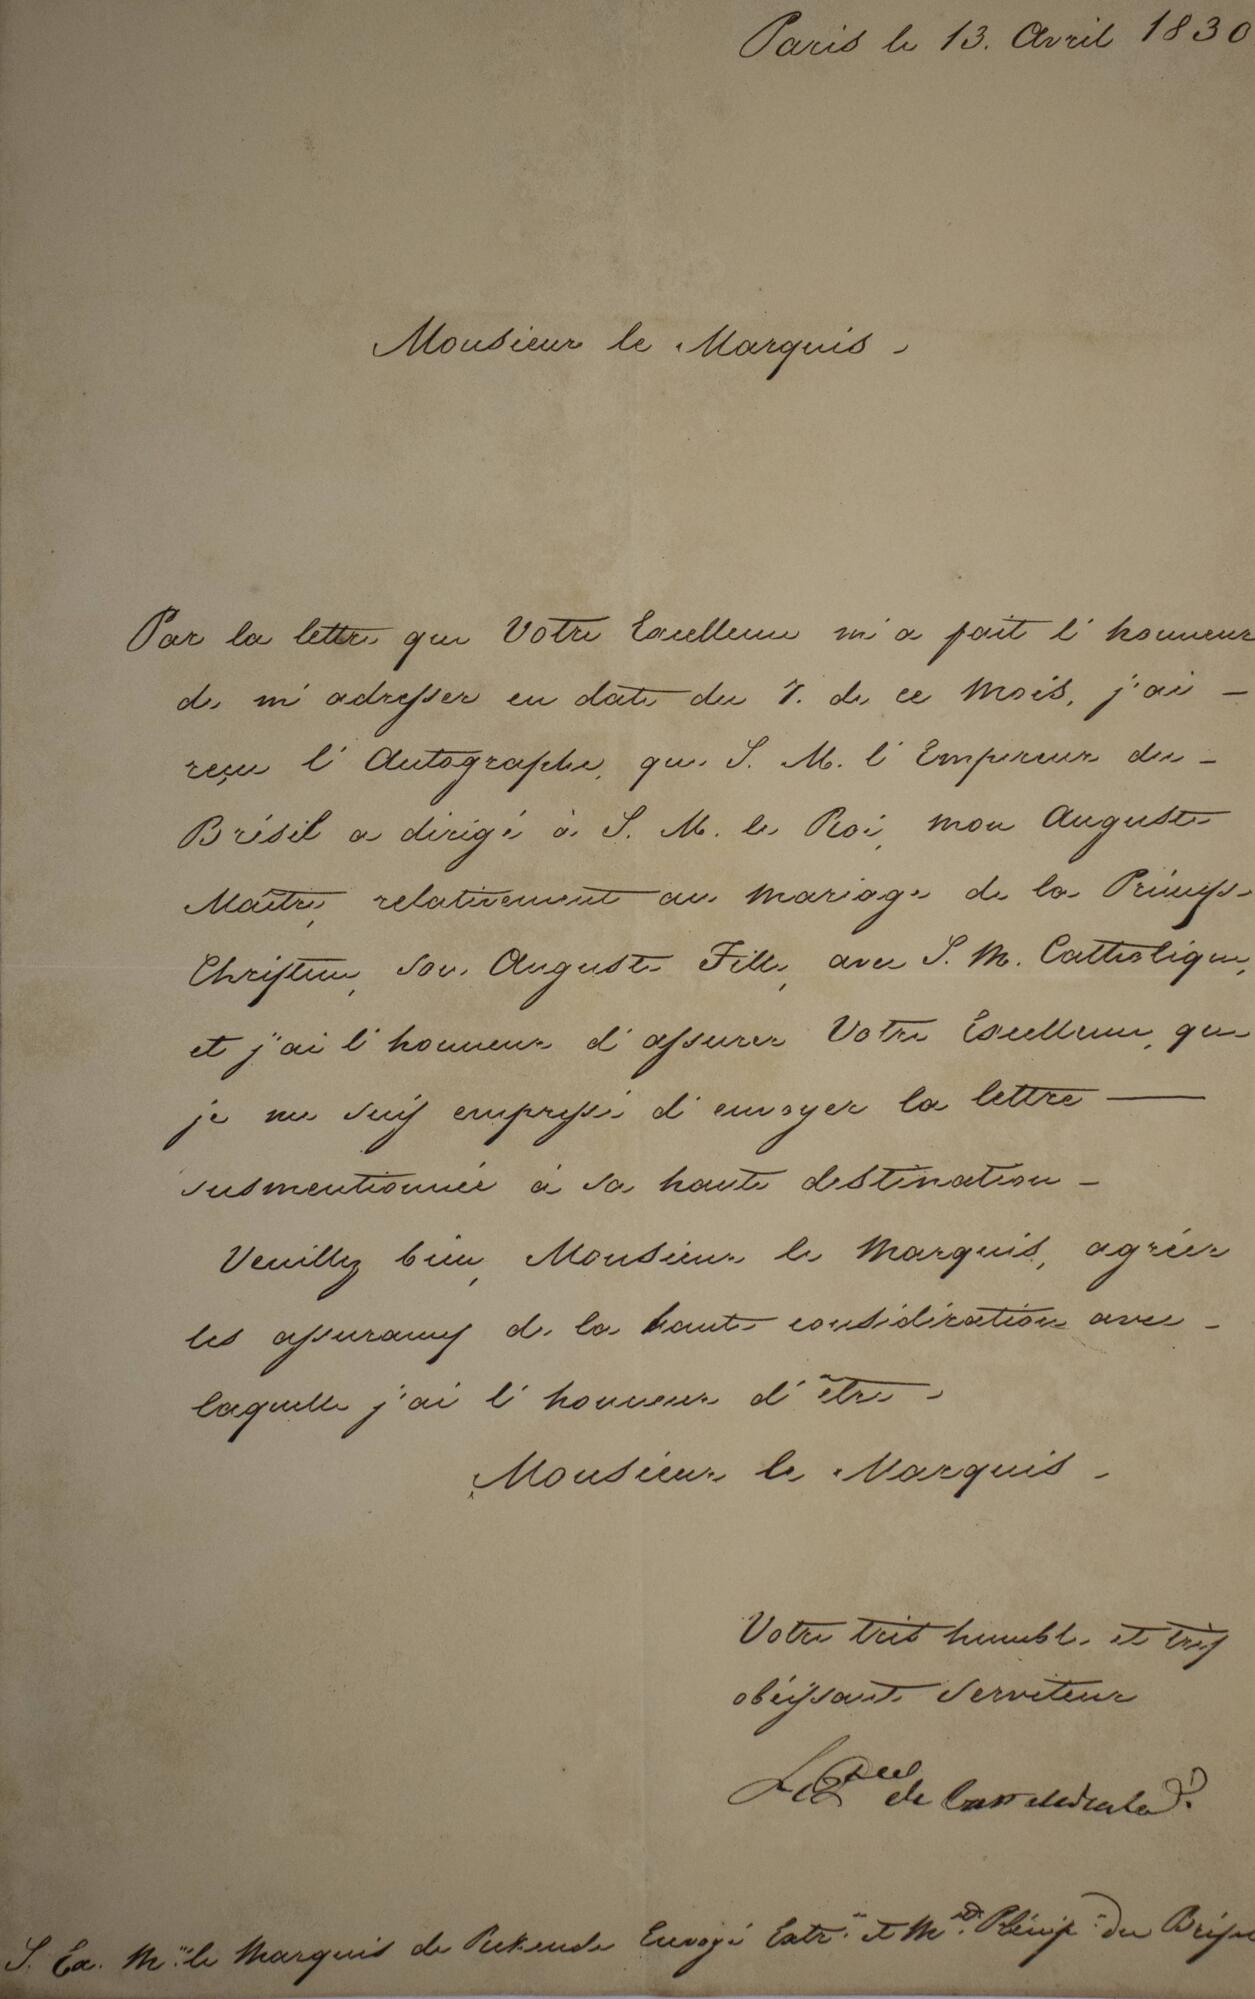 Paris le 13. Avril 1830
Monsieur le Marquis
Par la lettre que Votre Excellence m'a fait l'honneur
de m'adresser en date du 7. de ce Mois, j'ai —
reçu l'Autographe, que S. M. l'Empereur du —
Brésil a dirigé à S. M. le Roi, mon Auguste
Maître, relativement au Mariage de la Princesse
Christine, son Auguste Fille, avec S. M. Cattholique,
et j'ai l'honneur d'assurer Votre Excellence, que
je me suis empressé d'envoyer la lettre —
susmentionnée à sa haute destination —
Veuillez bien, Monsieur le Marquis, agréer
les assurances de la haute considération avec —
laquelle j'ai l'honneur d'être
Monsieur le Marquis
Votre très humble et très
obéissant Serviteur
de
S. Ex. Mr. le Marquis de Envoyé Extr. et M. Plénip. du Brésil